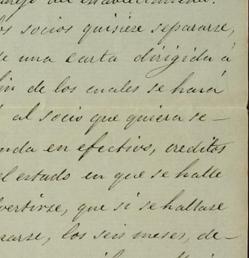 os socios quisiese separarse,
se una carta dirigida á
fin de los cuales se hará
al socio que quiera se-
nda en efectivo, creditos
el estado en que se halle
vertirse, que si se hallase
rarse, los seis meses, de-